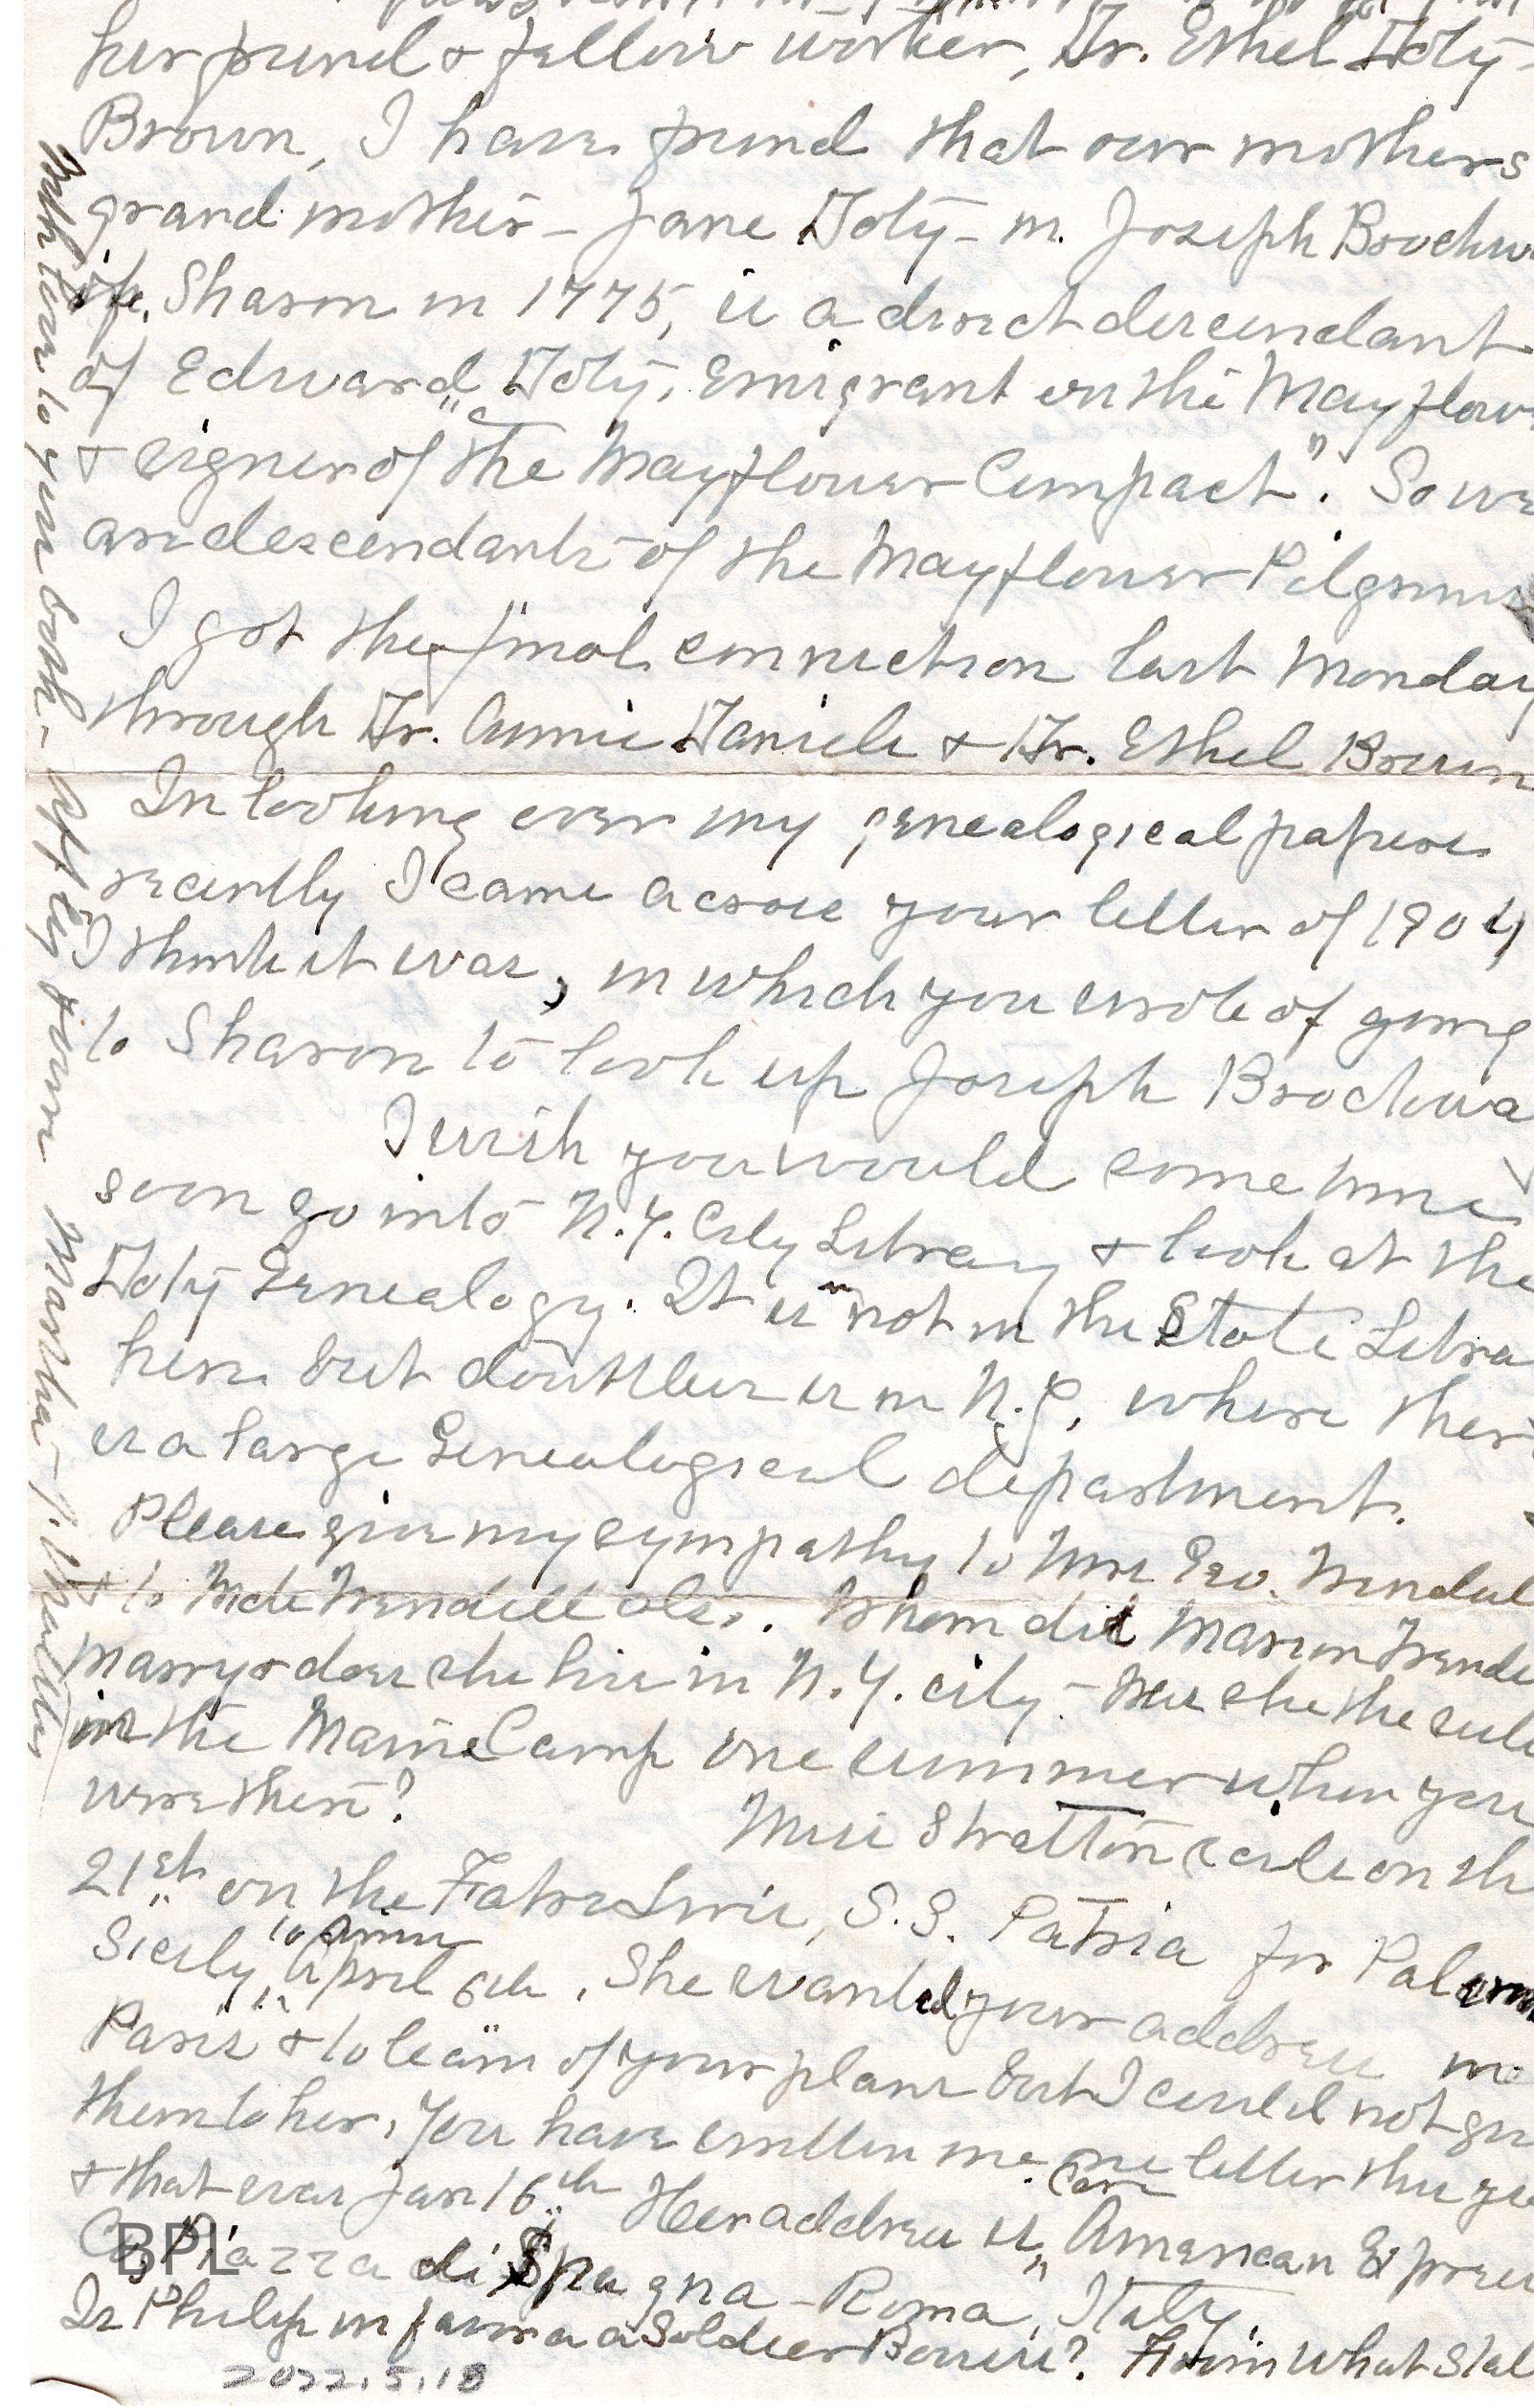 her friend & fellow worker, Dr. Ethel Doty-
Brown, I have found that our mothers
grandmother - Jane Doty - m. Joseph Brockw
of Sharon in 1775, is a direct descendant
of Edward Doty, Emigrant on the Mayflow
& signer of "The Mayflower Compact". So we
are descendants of the Mayflower Pilgrims
I got the final conviction last Monday
through Dr. Annie Daniels & Dr. Ethel Brown
In looking over my genealogical papers
recently I came across your letter of 1904
I think it was, in which you wrote of going
to Sharon to look up Joseph Brockwa
I wish you would some time
soon go into N.Y. City Library & look at the
Doty Genealogy. It is not in the State Libra
here but doubtless is in N.Y. where ther
is a large Genealogical department.
Please give my sympathy to Mrs Geo. Wendell
& to Mde Wendell also. Whom did Marion Wende
marry & does she live in N.Y. city - Was she the
in the Maine Camp one summer when you
were there?
Miss Stratton sails on th
21st on the Fabre Line, S.S. Patria for Palerm
Sicily, to arrive April 6th. She wanted your address in
Paris & to learn of your plans but I could not giv
them to her. You have written me one letter this ye
& that was Jan 16th Her address is Care American Expres
Co, Piazza di Spagna - Roma, Italy.
Is Philip in favor a a Soldier Bonus? From what Stat
With love to you both - Affly yours Martha
BPL
2022.5.18